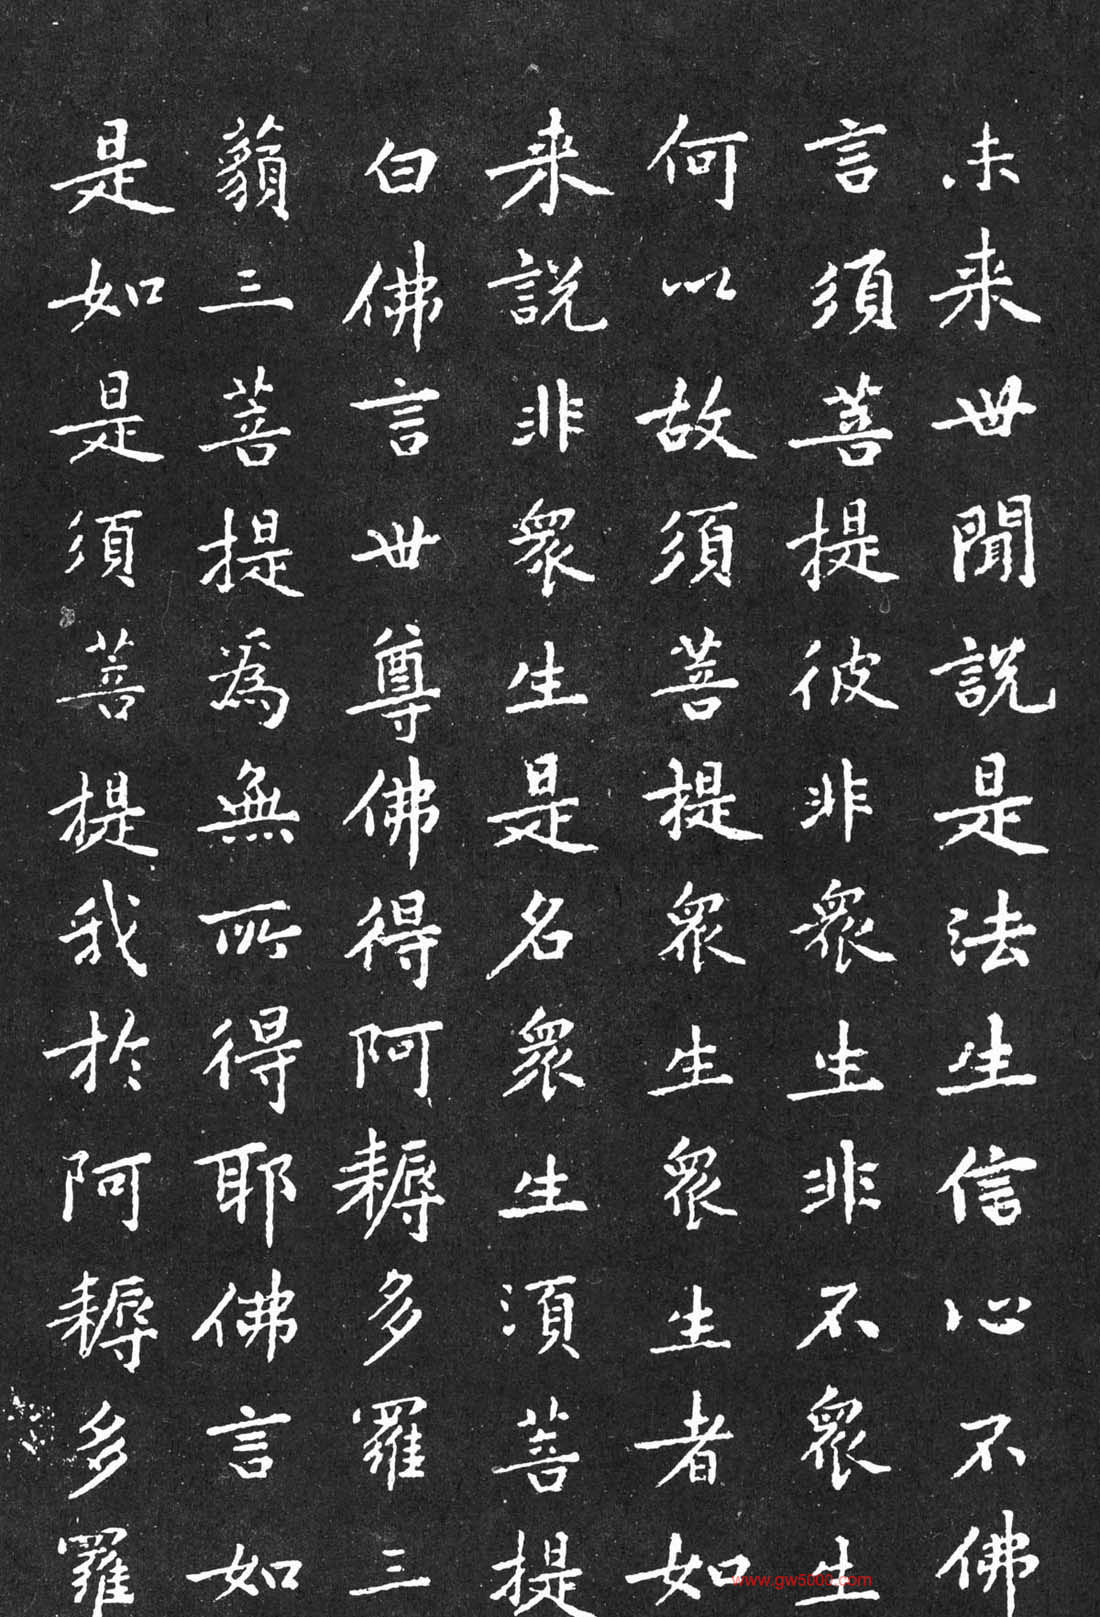 未来世聞說是法生信心不佛
言須菩提彼非衆生非不衆生
何以故須菩提衆生衆生者如
来說非衆生是名衆生須菩提
白佛言世尊佛得阿耨多羅三
藐三菩提為無所得耶佛言如
是如是須菩提我於阿耨多羅
www.gw5000.com